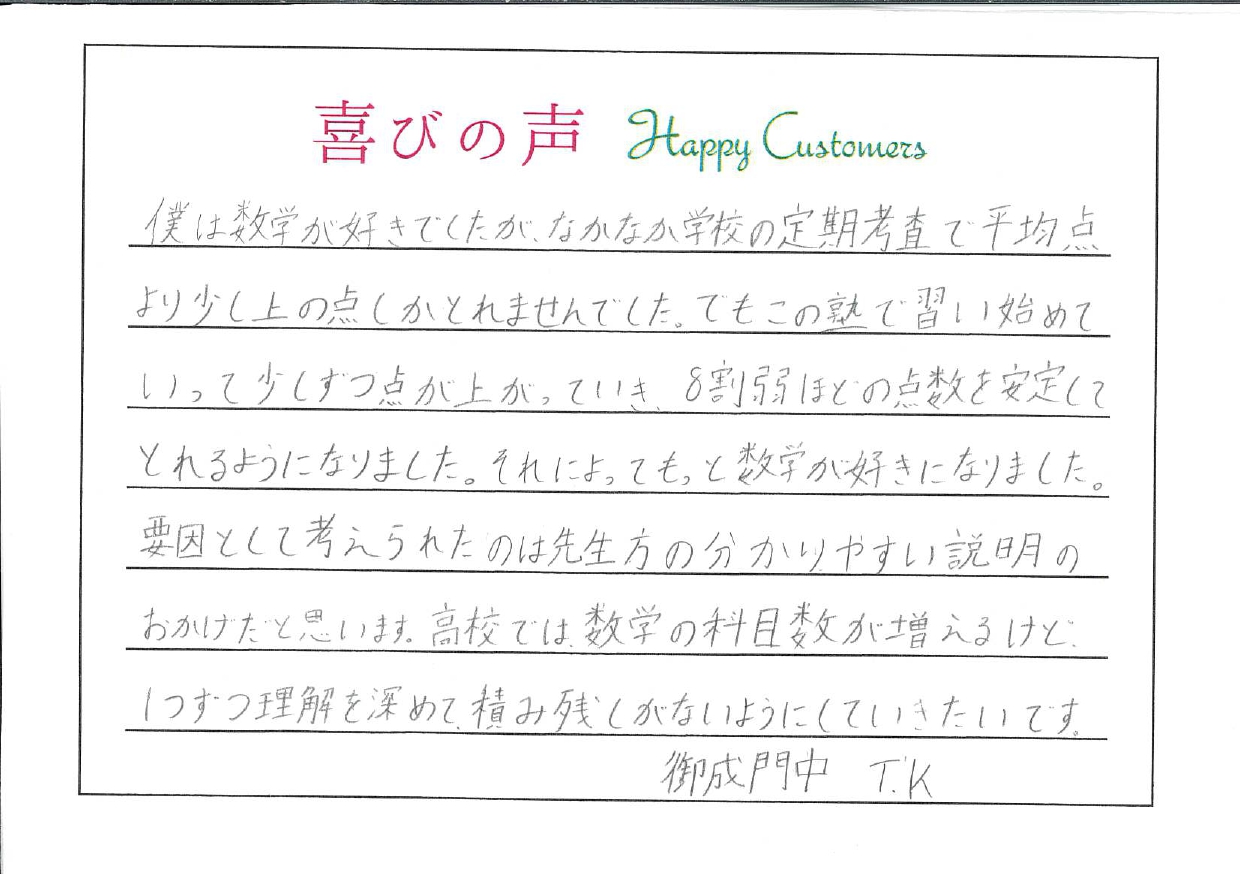 喜びの声 Happy Customers
僕は数学が好きでしたが、なかなか学校の定期考査で平均点
より少し上の点しかとれませんでした。でもこの塾で習い始めて
いって少しずつ点が上がっていき、8割弱ほどの点数を安定して
とれるようになりました。それによってもっと数学が好きになりました。
要因として考えられたのは先生方の分かりやすい説明の
おかげだと思います。高校では、数学の科目数が増えるけど、
1つずつ理解を深めて、積み残しがないようにしていきたいです。
御成門中 T.K